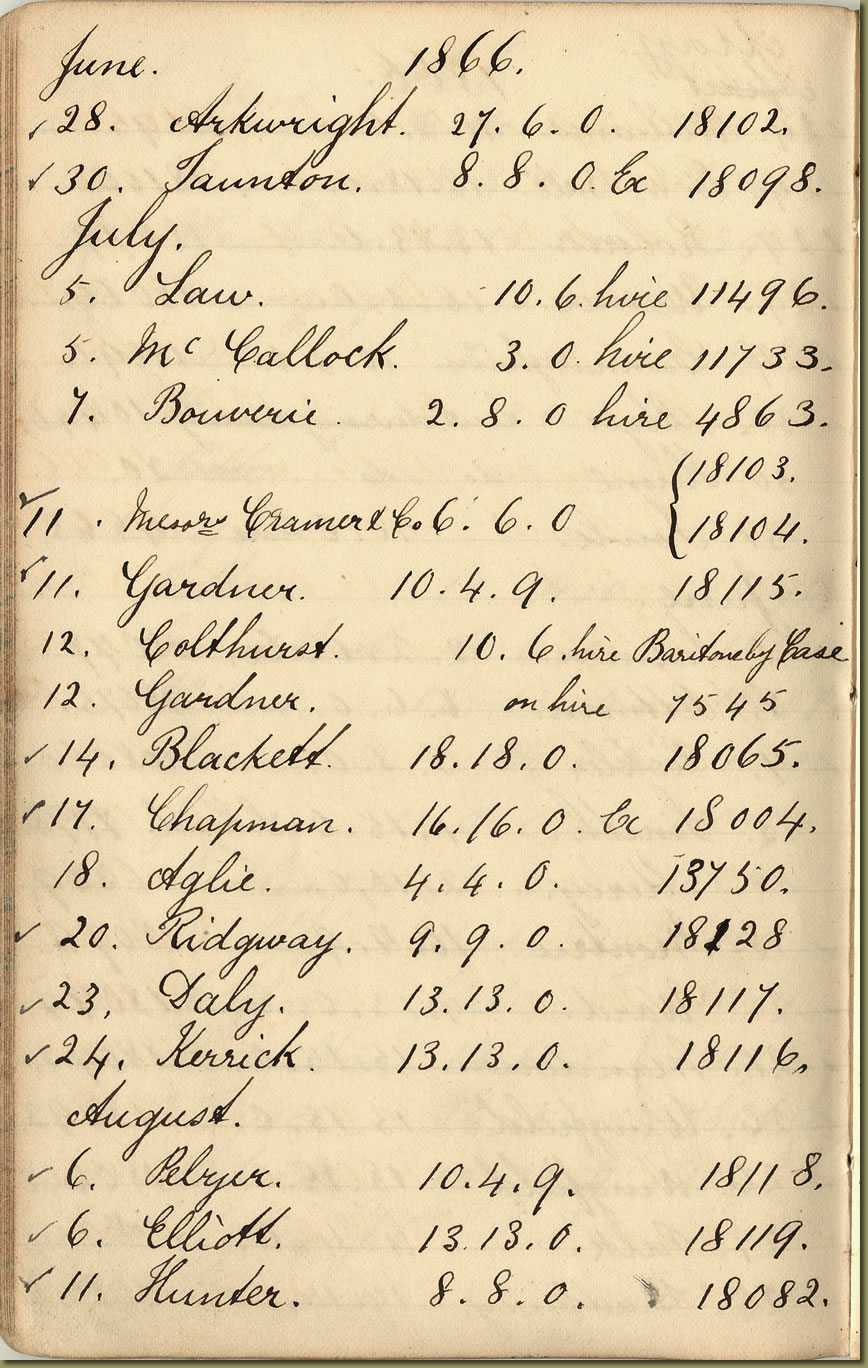 June. 1866.
✓28. Arkwright. 27. 6. 0. 18102.
✓30. Taunton. 8. 8. 0. Ex 18098.
July.
5. Law. 10. 6. hire 11496.
5. Mc Callock. 3. 0. hire 11733.
7. Bouverie. 2. 8. 0 hire 4863.
{18103.
✓11. Messrs Cramer & Co. 6. 6. 0
18104.
✓11. Gardner. 10. 4. 9. 18115.
12. Colthurst. 10. 6. hire Baritone by Case
12. Gardner. on hire 7545
✓14. Blackett. 18. 18. 0. 18065.
✓17. Chapman. 16. 16. 0. Ex 18004.
18. Aglie. 4. 4. 0. 13750.
✓20. Ridgway. 9. 9. 0. 18128
✓23. Daly. 13. 13. 0. 18117.
✓24. Kerrick. 13. 13. 0. 18116.
August.
✓6. Pelzer. 10. 4. 9. 18118.
✓6. Elliott. 13. 13. 0. 18119.
✓11. Hunter. 8. 8. 0. 18082.